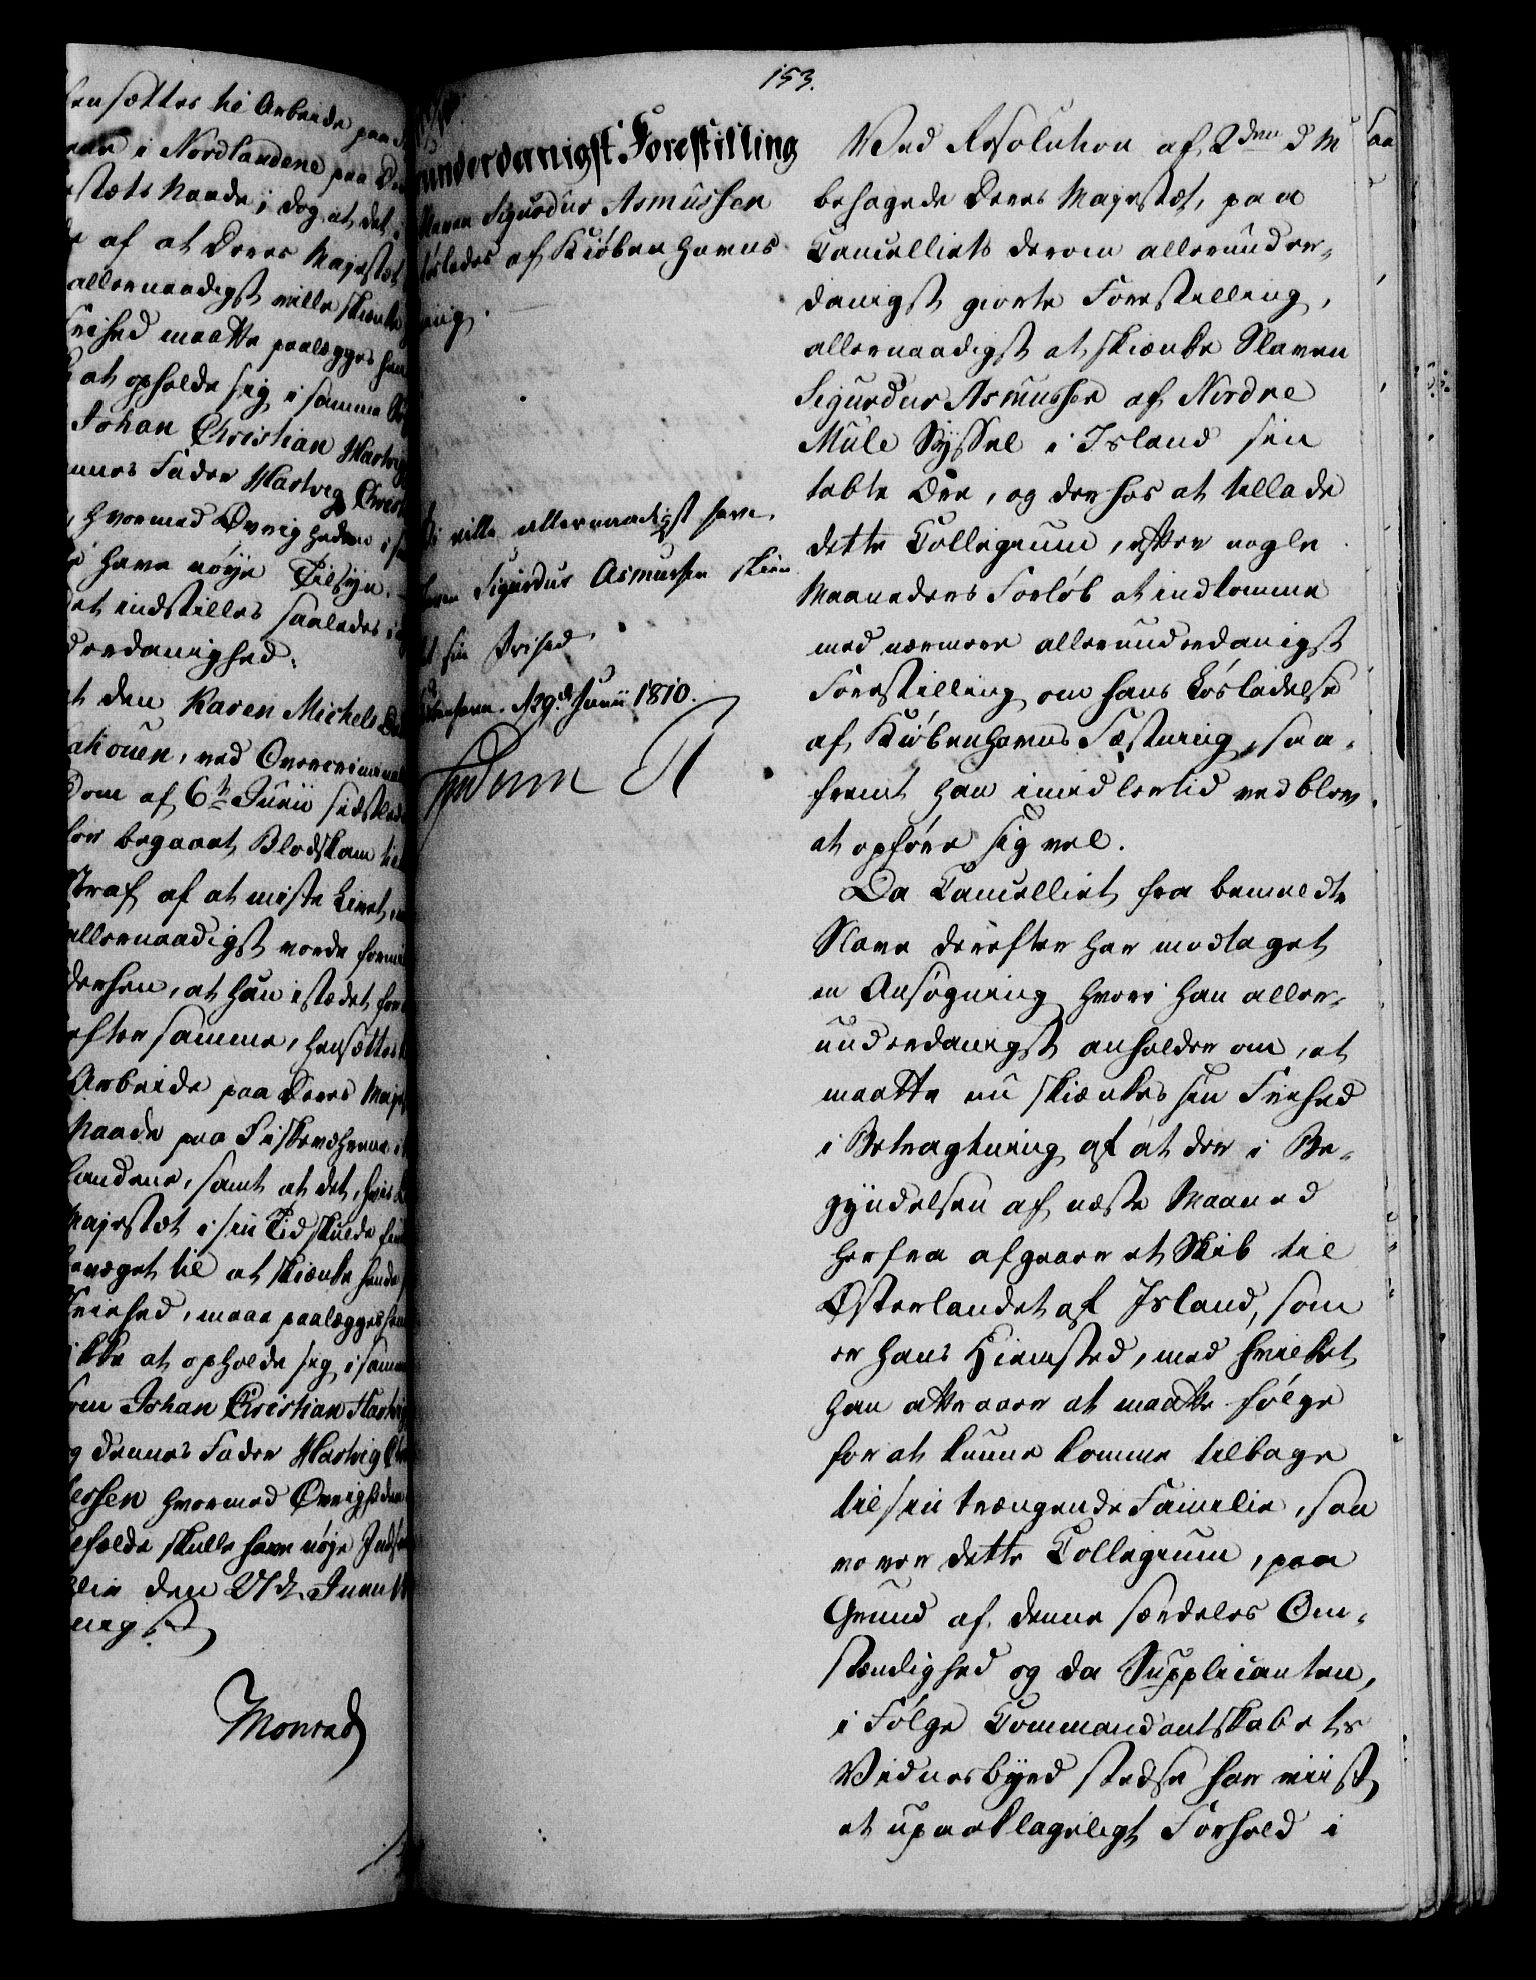 sættes til Arbeide paa
i Nordlandene paa
Naade; dog at det
af at Deres Majestæt
allernaadigst ville skienke
Frihed maatte paalægges
at opholde sig i samme
Johan Christian Hartvig
Fader Hartvig
hvormed Øvrigheden
have nøye Tilsyn.
indstilles saaledes
den Karen Michels
ved Overcriminal
Dom af 6te Junii sidstleden
for begaaet Blodskam
Straf af at miste Livet,
allernaadigst vorde
derhen, at hun istædet for
efter samme, hensættes
Arbeide paa Deres
Naade paa Fiskeværerne
landene, samt at det, hvis
Majestæt i sin Tid skulde
bevæget til at skienke hende
Friehed, maae paalægges
ikke at opholde sig i samme
som Johan Christian Hartvig
og dennes Fader Hartvig
hvormed Øvrigheden
skulle have nøje
den 27d Junii
Monrad
153.
underdanigst Forestilling
Slaven Sigurdur Asmussen
løslades af Kiøbenhavns
ville allernaadigst have
Sigurdur Asmussen skien
sin Frihed
29d Junii 1810.
Frederik R
Ved Resolution af 2den d M
behagede Deres Majestæt, paa
Cancelliets derom allerunder-
danigst giorte Forestilling,
allernaadigst at skienke Slaven
Sigurdur Asmussen af Nordre
Mule Syssel i Island sin
tabte Ære, og derhos at tillade
dette Collegium, efter nogle
Maaneders Forløb at indkomme
med nærmere allerunderdanigst
Forestilling om hans Løsladelse
af Kiøbenhavns Fæstning, saa-
fremt han imidlertid vedblev
at opføre sig vel.
Da Cancelliet fra bemeldte
Slave derefter har modtaget
en Ansøgning hvori han aller-
underdanigst anholder om, at
maatte nu skienkes sin Friehed
i Betragtning af at der i Be-
gyndelsen af næste Maaned
herfra afgaaer et Skib til
Østerlandet af Island, som
er hans Hiemsted, med hvilket
han attraaer at maatte følge
for at kunne komme tilbage
til sin trængende Familie, saa
vover dette Collegium, paa
Grund af denne særdeles Om-
stændighed og da Supplicanten,
i Følge Commandantskabets
Vidnesbyrd stedse har viist
et upaaklageligt Forhold i